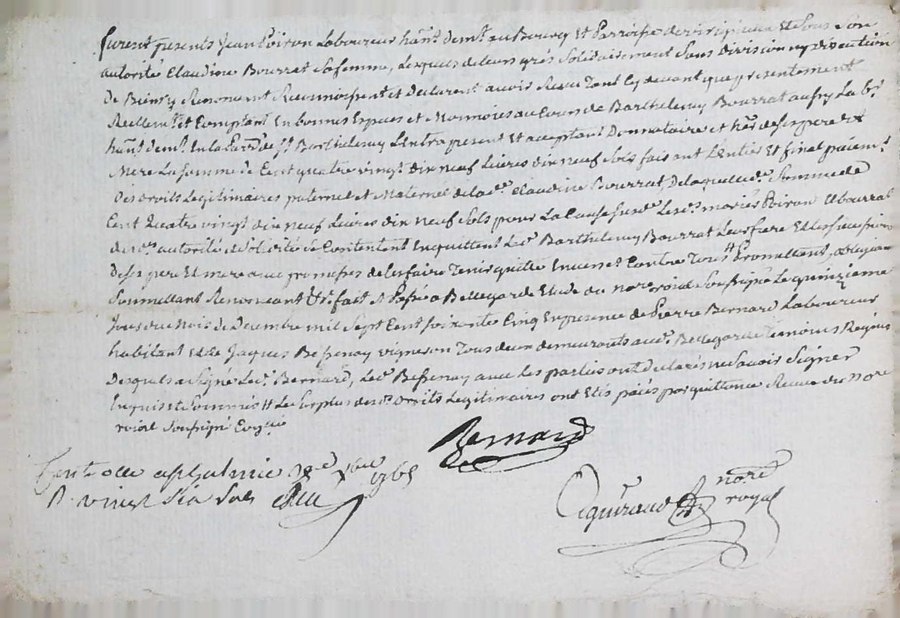 furent presents Jean Poiron Laboureur habt demt au Bourcq et Parroisse de et sous son
autorité Claudine Bourrat sa femme, Lesquels de leurs grés solidairement sans division ny discution
De Biens y Renonçant Reconnoissent et declarent avoir Reçeu tant Cy devant que presentement
Reellemt et Comptant En bonnes Espeçes et Monnoies au Cours de Barthelemy Bourrat aussy Labr
habt demt En la parsse de St Barthelemy Lentra present et acceptant Donnataire et her de ses pere et
Mere La somme de Cent quatre vingt Dix neuf Livres dix neuf sols faisant L'entier et final paiemt
Des droits Legitimaires paternel et Maternel de lade Claudine Bourrat De laquelle de somme de
Cent Quatre vingt dix neuf Livres dix neuf sols pour La Cause susde Lesds mariés Poiron et Bourrat
de autorité et solidité se Contentent En quittent Led Barthelemy Bourrat Leur frere Et
De ses pere et mere avec promesses de les faire Tenir quitte Envers et Contre Tous Promettant, obligeant
Soumettant Renonceant &c fait et Passé a Bellegarde Etude du nore roial Soussigné Le quinzieme
Jour du Mois de Decembre mil Sept Cent soixante Cinq En presence de Pierre Bernard Laboureur
habitant et de Jacques Bessenay vigneron Tous deux demeurants aud Bellegarde Temoins Requis
Desquels a signé Led Bernard, Led Bessenay avec les parties ont declaré ne savoir signer
Enquis et sommés Le surplus desd droits Legitimaires ont etés paiés par quittance Reçeue du Nore
roial soussigné
Bernard
Controllé a St Galmie Le xbre 1765
R vingt six sols
nore
royal